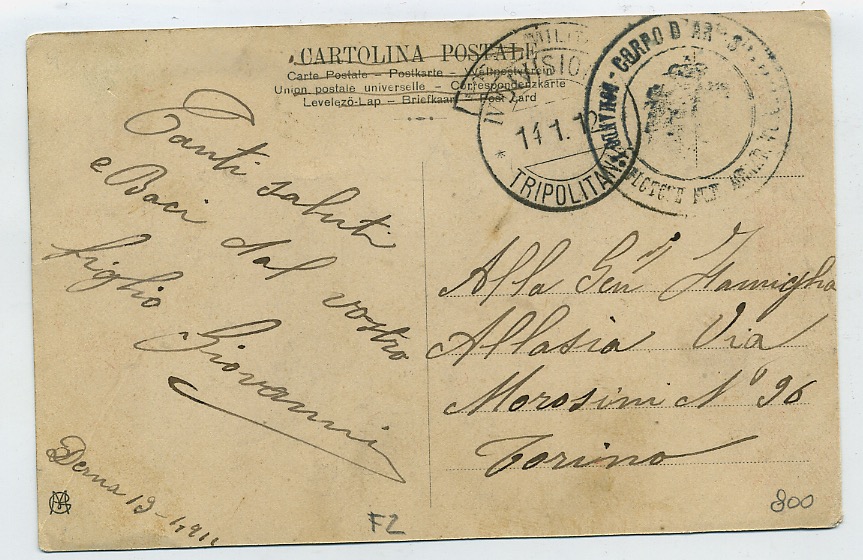 CARTOLINA POSTALE
Carte Postale – Postkarte – Weltpostverein
Union postale universelle – Correspondenzkarte
Levelező-Lap – Briefkaart – Post Card
MILIT
IV
TRIPOLITAN
CORPO D'AR
Tanti saluti
e Baci dal vostro
figlio
Giovanni
Derna 19
Alla Gen Famiglia
Allasia Via
Morosini N° 96
Torino
F2
800